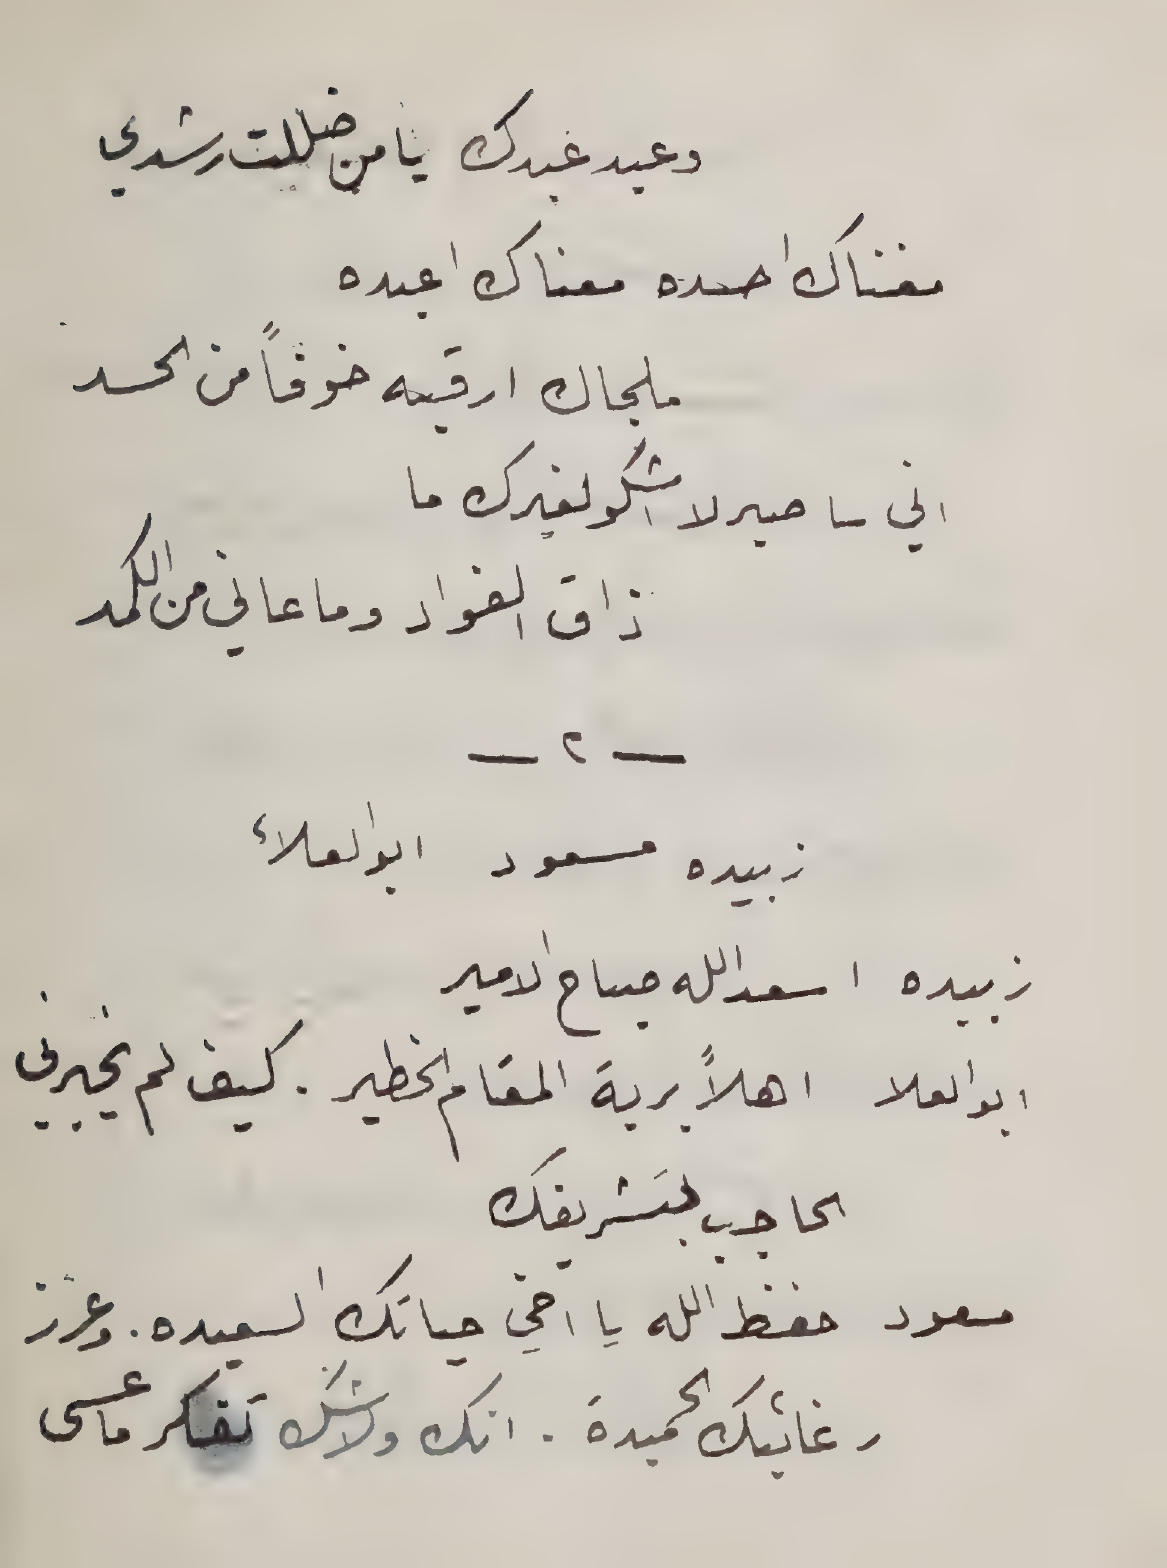 وعيد عبدك يا من ضللت رشدي
مغناك احسده معناك اعبده
ملجاك ارقبه خوفاً من الحسد
اني ساصبر لا اشكو لغيرك ما
ذاق الفواد وما عاني من الكمد
— ٢ —
زبيده مسعود ابو العلاء
زبيده اسعد الله صباح الامير
ابو العلا اهلاً بربة المقام الخطير . كيف لم يخبرني
الحاجب بتشريفك
مسعود حفظ الله يا اخي حياتك السعيده . وعزز
رغائبك الحميدة . انك ولا شك تفكر ما عسى